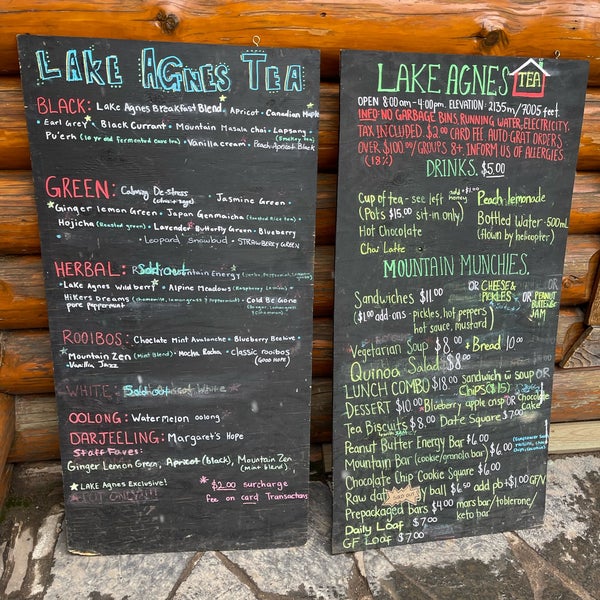 LAKE AGNES TEA
BLACK: Lake Agnes Breakfast Blend, Apricot, Canadian Maple
Earl Grey, Black Currant, Mountain Masala Chai, Lapsang,
(smokey tea)
Pu'erh (10 yr old fermented cave tea) Vanilla cream, Peach Apricot Black
GREEN: Calming De-stress, Jasmine Green,
Ginger lemon Green, Japan Genmaicha (Toasted Rice tea)
Hojicha (Roasted green) Lavender Butterfly Green, Blueberry
Leopard Snowbud, STRAWBERRY GREEN
HERBAL: Sold out Mountain Energy
Lake Agnes Wild berry, Alpine Meadows (Raspberry Lemon)
Hikers dreams (chamomile, lemongrass & peppermint), Cold Be Gone
pure peppermint (Ginger, Lemongrass & cinnamon)
ROOIBOS: Chocolate Mint Avalanche, Blueberry Beehive
Mountain Zen (Mint Blend), Mocha Rocha, Classic rooibos
Vanilla Jazz (GOOD HOPE)
WHITE: Sold out White
OOLONG: Watermelon oolong
DARJEELING: Margaret's Hope
Staff Faves:
Ginger Lemon Green, Apricot (black), Mountain Zen
(mint blend)
LAKE Agnes Exclusive!
HOT ONLY!!!
$2.00 surcharge
fee on card Transactions
LAKE AGNES TEA
OPEN 8:00am-4:00pm. ELEVATION: 2135m/7005 feet.
INFO: NO GARBAGE BINS, RUNNING WATER, ELECTRICITY.
TAX INCLUDED. $2.00 CARD FEE AUTO GRAT ORDERS
OVER $100.00/GROUPS 8+. INFORM US OF ALLERGIES
(18%)
DRINKS. $5.00
Cup of tea - see left add +$1.00 honey
(Pots $15.00 sit-in only)
Hot Chocolate
Chai Latte
Peach lemonade
Bottled Water - 500mL
(flown by helicopter)
MOUNTAIN MUNCHIES.
Sandwiches $11.00 OR CHEESE & PICKLES OR PEANUT BUTTER & JAM
($1.00 add-ons - pickles, hot peppers,
hot sauce, mustard)
Vegetarian Soup $8.00 + Bread 10.00
Quinoa Salad $8.00
LUNCH COMBO $18.00 Sandwich w soup OR
CHIPS ($15)
DESSERT $10.00 Blueberry apple crisp OR Chocolate Cake
Tea Biscuits $8.00 Date Square $7.00
Peanut Butter Energy Bar $6.00
Mountain Bar (cookie/granola bar) $6.00
Chocolate Chip Cookie Square $6.00
Raw date ball $6.50 add pb +$1.00 GF/V
Prepackaged bars $4.00 mars bar/toblerone/
keto bar
Daily Loaf $7.00
GF Loaf $7.00